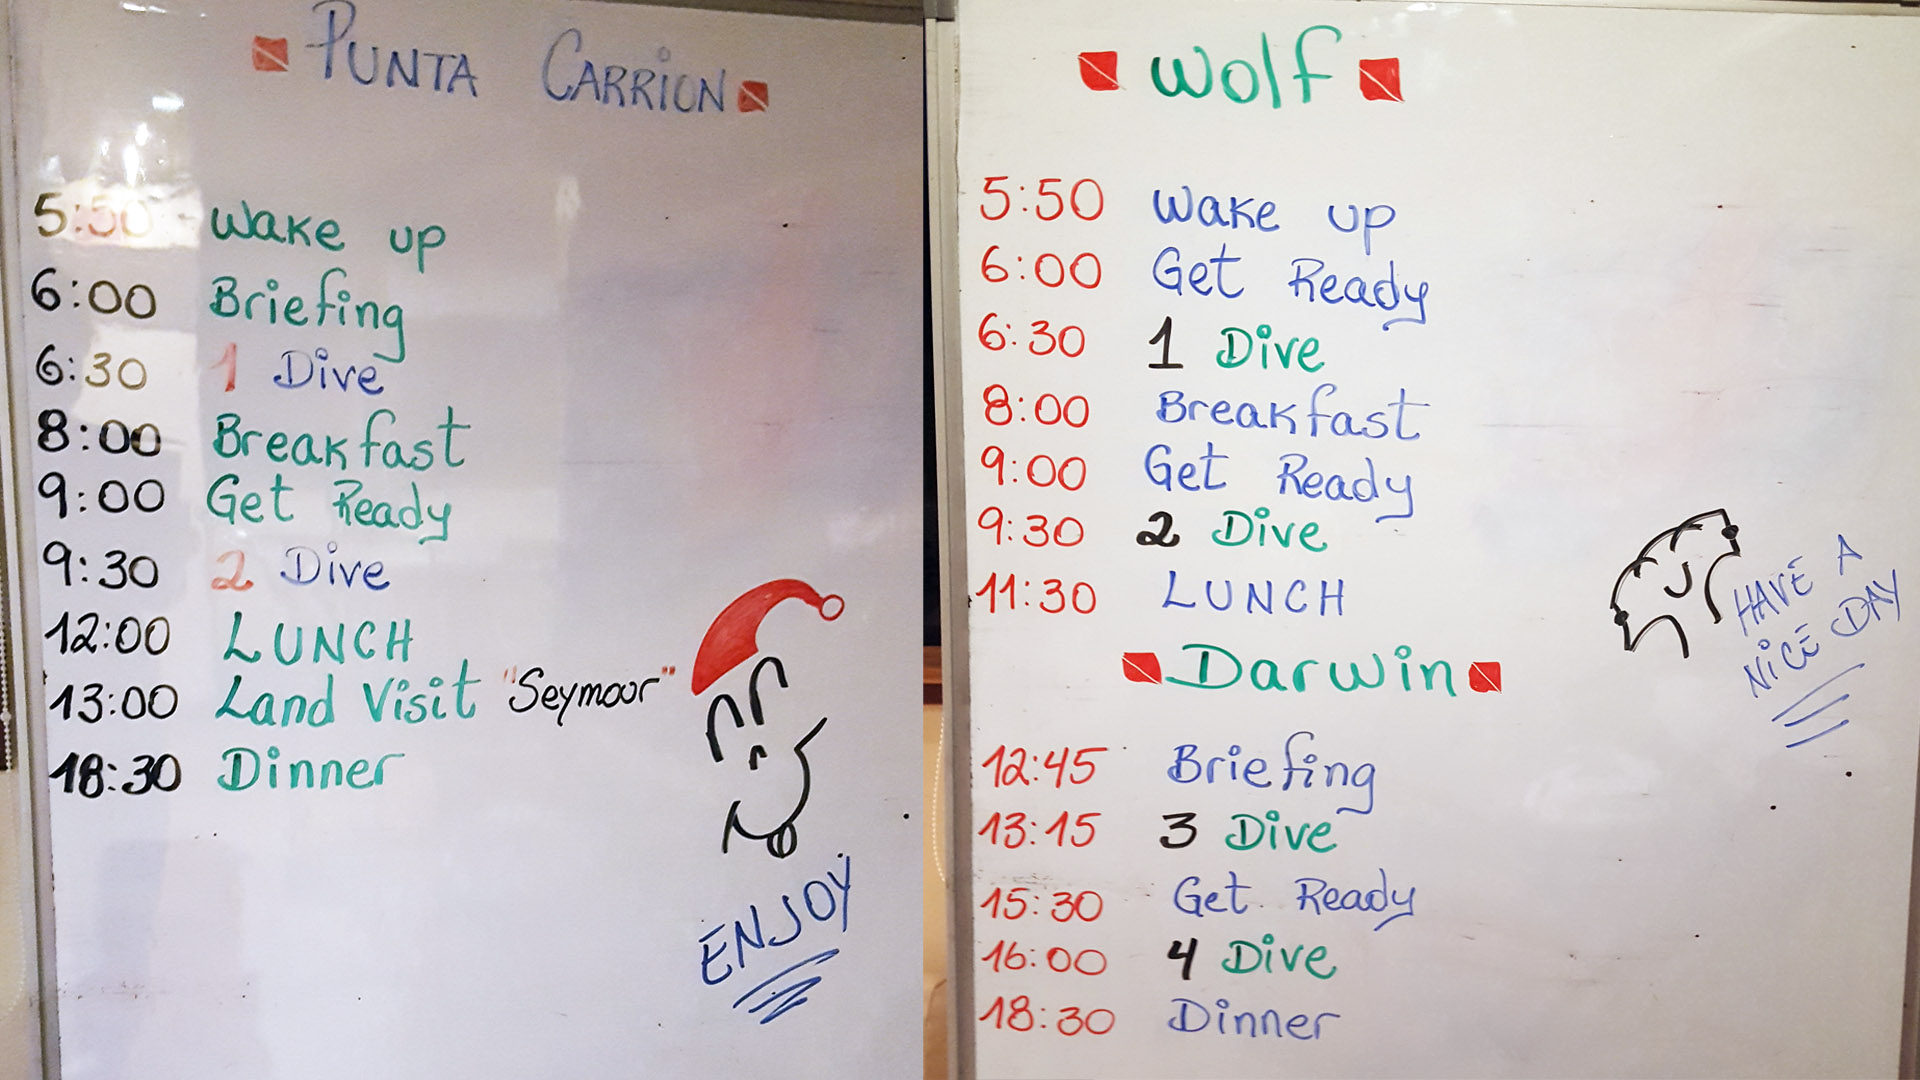 PUNTA CARRION
5:50 - Wake up
6:00 Briefing
6:30 1 Dive
8:00 Breakfast
9:00 Get Ready
9:30 2 Dive
12:00 LUNCH
13:00 Land Visit "Seymour"
18:30 Dinner
ENJOY
Wolf
5:50 Wake up
6:00 Get Ready
6:30 1 Dive
8:00 Breakfast
9:00 Get Ready
9:30 2 Dive
11:30 LUNCH
Darwin
12:45 Briefing
13:15 3 Dive
15:30 Get Ready
16:00 4 Dive
18:30 Dinner
HAVE A
NICE DAY